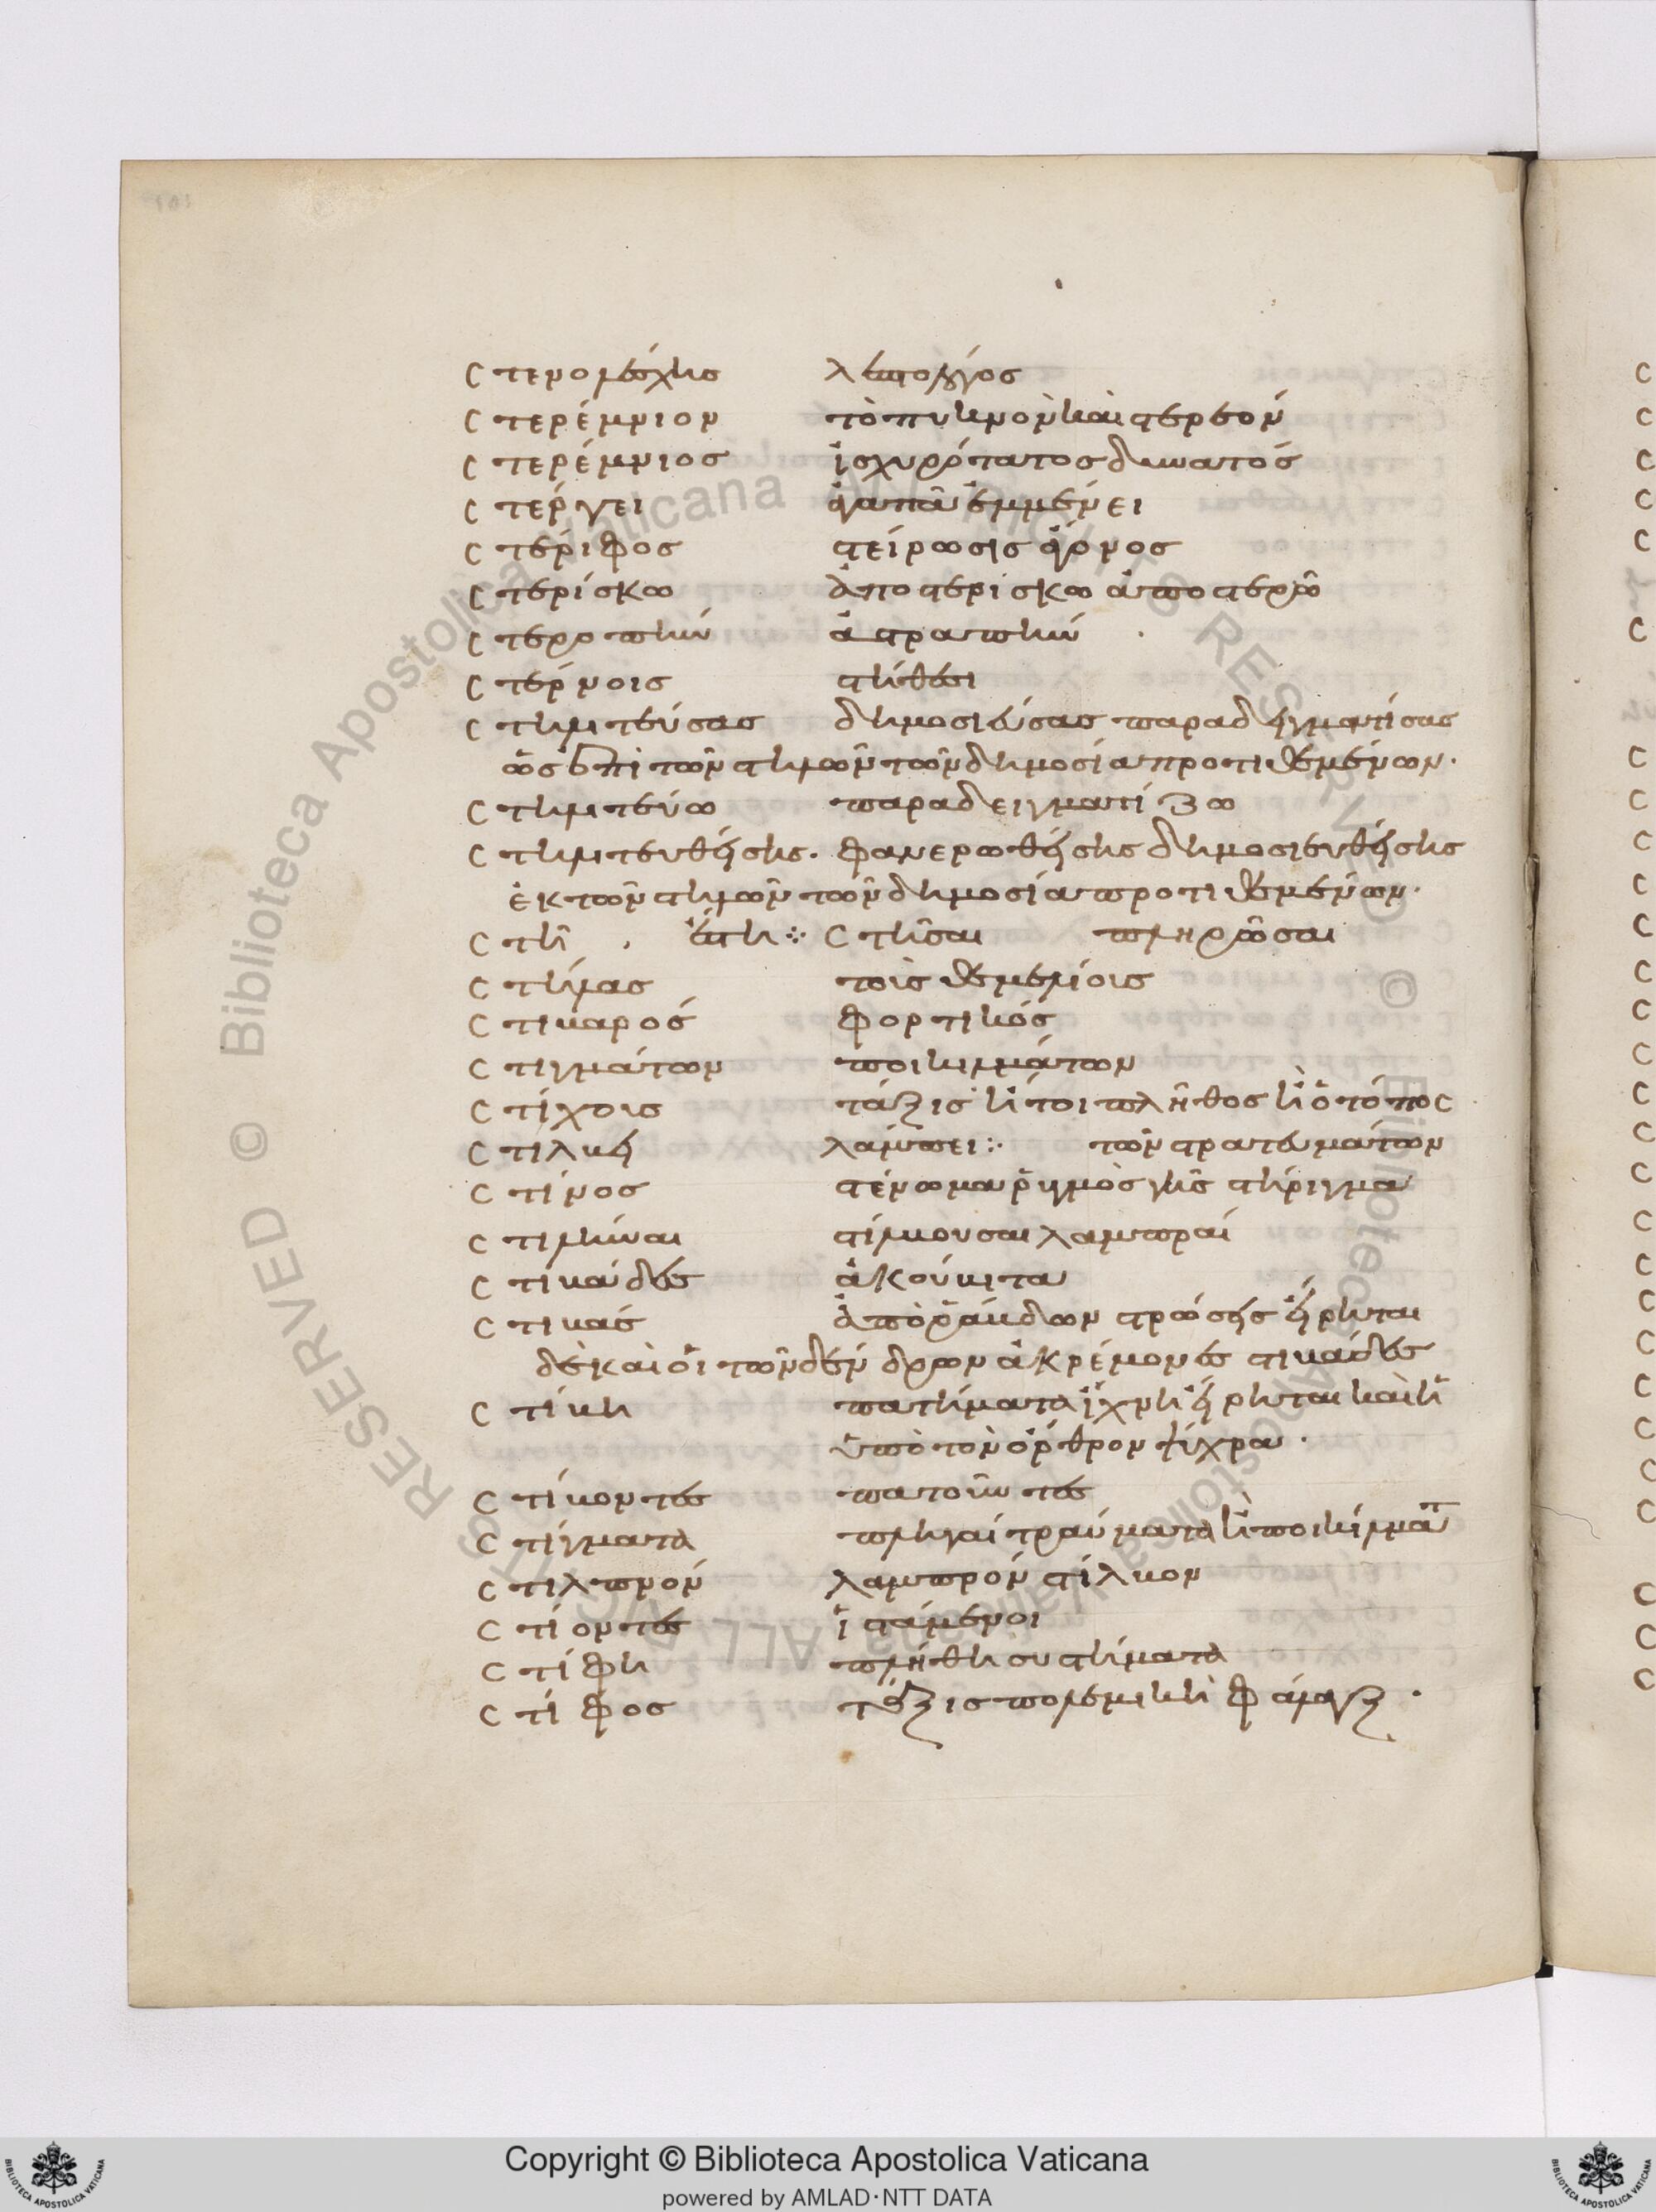 Στενολέσχης λεπτολόγος
Στερέμνιον τὸ πυκνὸν καὶ στερεόν
Στερέμνιος ἰσχυρότατος δυνατός
Στέργει ἀγαπᾶ ἐμμένει
Στέριφος στείρωσις ἄγονος
Στερίσκω ἀποστερίσκω ἀποστερῶ
Στεροπήν ἀστραπήν
Στέρνοις στήθεσι
Στηλιτεύσας δημοσιεύσας παραδειγματίσας
ὡς ἐπὶ τῶν στηλῶν τῶν δημοσία προτιθεμένων.
Στηλιτεύω παραδειγματίζω
Στηλιτευθείσης. φανερωθείσης δημοσιευθείσης
ἐκ τῶν στηλῶν τῶν δημοσία προτιθεμένων.
Στῆ ἔστη ⁘ Στῆσαι πληρῶσαι
Στήλας τοῖς θεμελίοις
Στιβαρός φορτικός
Στιγμάτων ποικιλμάτων
Στίχοις τάξις ἤτοι πλῆθος ἢ ὁ τόπος
Στιλβεί λάμπει ⁘ τῶν στρατευμάτων
Στῖνος στένωμα γῆς στήριγμα
Στιλβναι στίλβουσαι λαμπραί
Στιβάδες ἀκούβιτα
Στιβάς ἀπὸ ῥάβδων στρῶσις εἴρηται
δὲ καὶ οἱ τῶν δένδρων ἀκρέμονες στιβάδες
Στίβη πατήματα ἴχνη εἴρηται καὶ ἡ
ὑπὸ τὸν ὄρθρον ψύχρα.
Στίβοντες πατοῦντες
Στίγματα πληγαί τραύματα ἢ ποικίλματ
Στιλπνόν λαμπρόν στίλβον
Στίοντες ἱστάμενοι
Στίφη πλήθη συστήματα
Στίφος τάξις πολεμικὴ φάλαγξ.
Copyright © Biblioteca Apostolica Vaticana
powered by AMLAD·NTT DATA